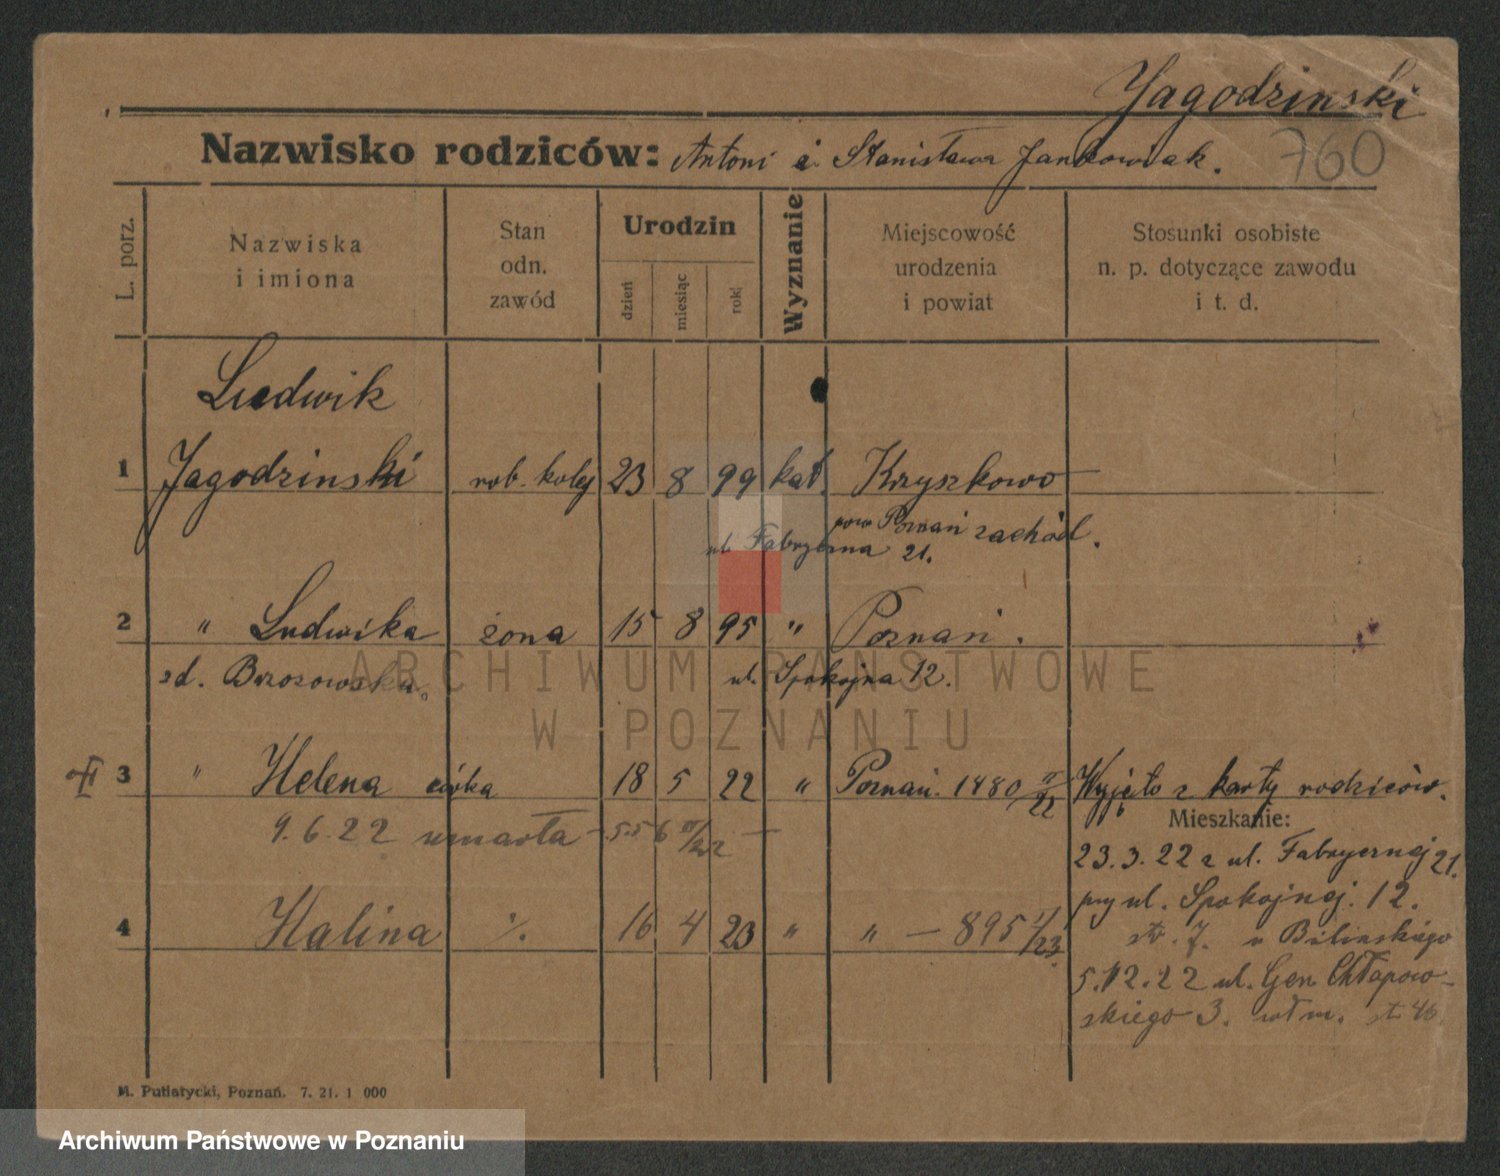 Jagodzinski
Nazwisko rodziców: Antoni i Stanisława Jankowiak.
760
L. porz.
Nazwiska
i imiona
Stan
odn.
zawód
Urodzin
dzień
miesiąc
rok
Wyznanie
Miejscowość
urodzenia
i powiat
Stosunki osobiste
n. p. dotyczące zawodu
i t. d.
Ludwik
1 Jagodzinski rob. kolej 23 8 99 kat. Kryszkowo
pow Poznań zachód.
ul. Fabryczna 21.
2 " Ludwika żona 15 8 95 " Poznań.
zd. Brzozowska. ul. Spokojna 12.
3 " Helena córka 18 5 22 " Poznań. 1480 II/22 Wyjęto z karty rodziców.
9.6.22 umarła - 556 III/22 -
Mieszkanie:
23.3.22 z ul. Fabrycznej 21.
przy ul. Spokojnej. 12.
4 Halina ./. 16 4 23 " " - 895 I/23
str. 7. u Bilinskiego
5.12.22 ul. Gen Chłapow-
skiego 3. wł m. st 46
M. Putiatycki, Poznań. 7. 21. 1 000
ARCHIWUM PAŃSTWOWE
W POZNANIU
Archiwum Państwowe w Poznaniu